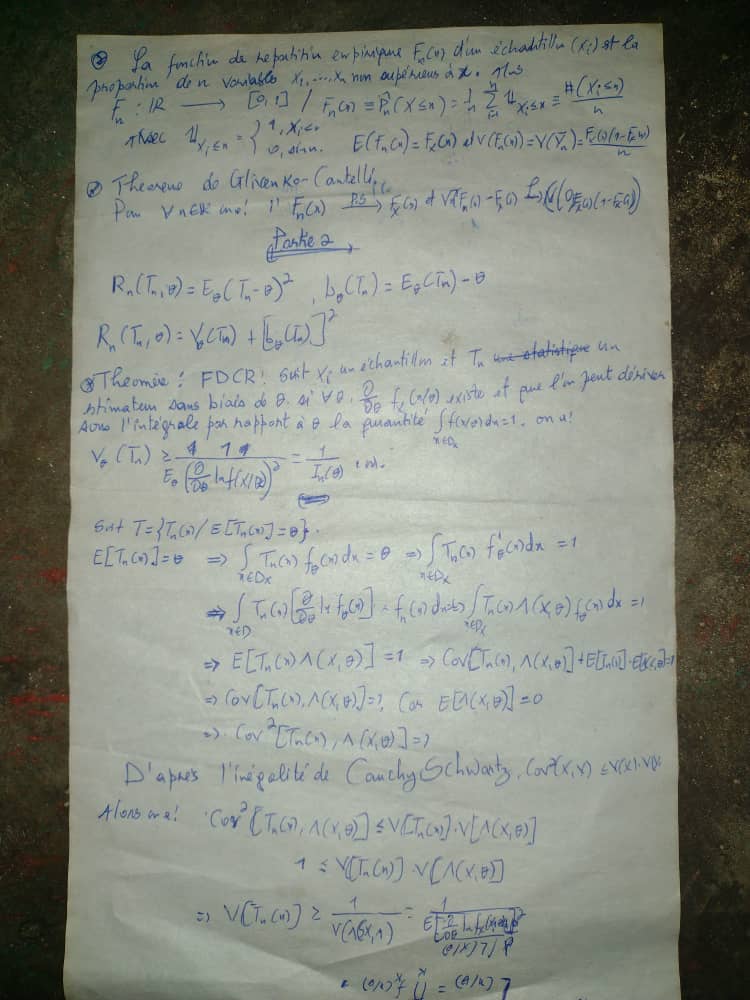 La fonction de repartition empirique Fₙ(x) d'un échantillon (xi) est la
proportion de n variable x₁,...,xₙ non supérieures à x.
Fₙ : IR ⟶ [0,1] / Fₙ(x) ≡ P̂ₙ(X≤x) = 1/n Σ 𝟙 xi≤x ≡ #(Xi≤x)/n
Avec 𝟙 xi≤x = { 1, xi≤x ; 0, sinon. E(Fₙ(x)) = Fx(x) et V(Fₙ(x)) = V(Ȳₙ) = Fx(x)(1-Fx(x))/n
Theoreme de Glivenko-Cantelli
Partie 2
Rₙ(Tₙ, θ) = Eθ(Tₙ-θ)², bθ(Tₙ) = Eθ(Tₙ) - θ
Rₙ(Tₙ, θ) = Vθ(Tₙ) + [bθ(Tₙ)]²
FDCR : Soit Xi un échantillon et Tₙ un
estimateur sans biais de θ. si ∀θ, ∂/∂θ fx(x/θ) existe et que l'on peut dériver
sous l'intégrale par rapport à θ la quantité ∫x∈Dx f(x/θ)dx = 1. on a :
Vθ(Tₙ) ≥ 1/Eθ(∂/∂θ ln f(x/θ))² = 1/Iₙ(θ)
Soit T = {Tₙ(x) / E[Tₙ(x)] = θ}.
E[Tₙ(x)] = θ ⇒ ∫x∈Dx Tₙ(x) fθ(x) dx = θ ⇒ ∫x∈Dx Tₙ(x) f'θ(x)dx = 1
⇒ ∫x∈D Tₙ(x) [∂/∂θ ln fθ(x)] · fₙ(x) dx ⇒ ∫x∈Dx Tₙ(x) Λ(x,θ) fθ(x) dx = 1
⇒ E[Tₙ(x) Λ(x,θ)] = 1 ⇒ Cov[Tₙ(x), Λ(x,θ)] + E[Tₙ(x)]·E[Λ(x,θ)] = 1
⇒ Cov[Tₙ(x), Λ(x,θ)] = 1, Car E[Λ(x,θ)] = 0
⇒ Cov²[Tₙ(x), Λ(x,θ)] = 1
D'après l'inégalité de Cauchy Schwartz, Cov²(x,y) ≤ V(x)·V(y)
Alors on a : Cov²[Tₙ(x), Λ(x,θ)] ≤ V[Tₙ(x)]·V[Λ(x,θ)]
1 ≤ V[Tₙ(x)] · V[Λ(x,θ)]
⇒ V[Tₙ(x)] ≥